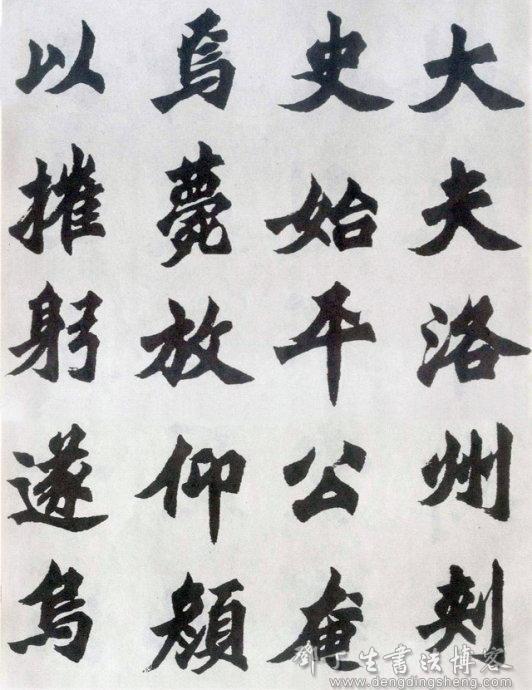 大夫洛州刺
史始平公奄
焉薨放仰顏
以摧躬遂為
鄧丁生書法博客
www.dengdingsheng.com